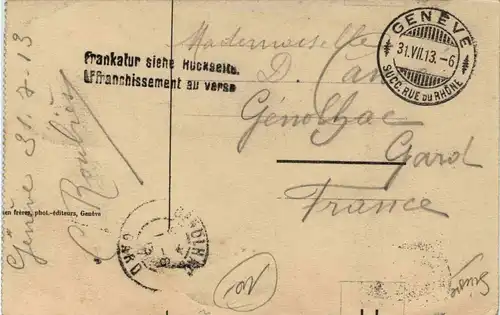 Frankatur siehe Rückseite.
Affranchissement au verso
GENÈVE
31.VII.13.-6
SUCC. RUE DU RHÔNE
Mademoiselle
D.
Génolhac
Gard
France
Genève 31-7-13
C. Roubier
frères, phot.-éditeurs, Genève
GARD
Suisse